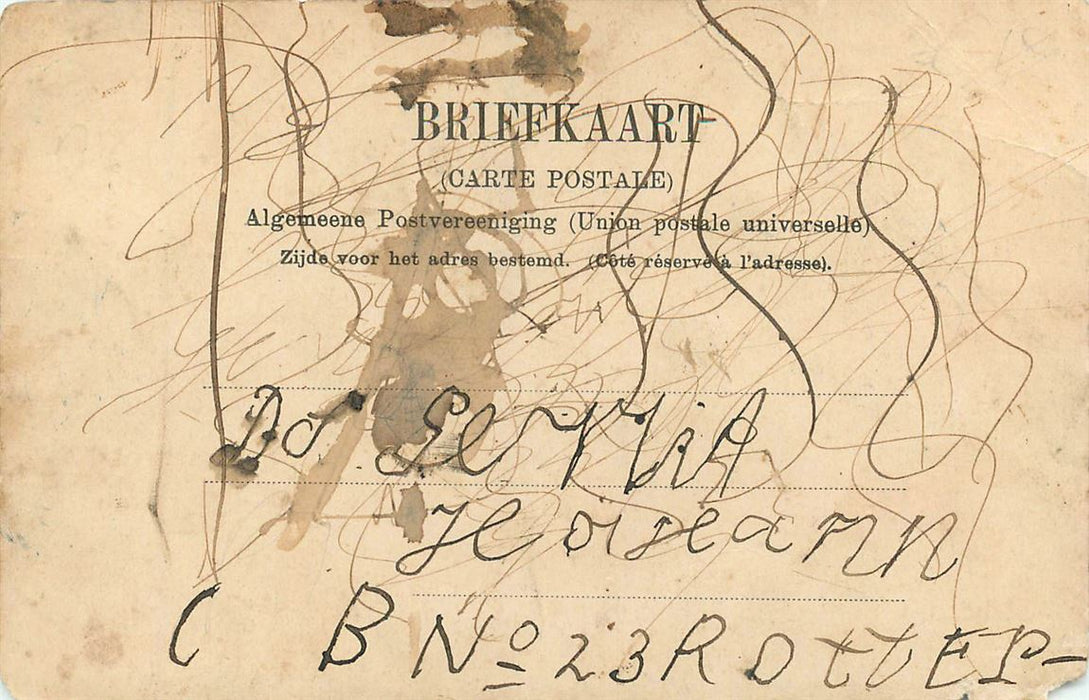 BRIEFKAART
(CARTE POSTALE)
Algemeene Postvereeniging (Union postale universelle)
Zijde voor het adres bestemd. (Côté réservé à l'adresse).
C B No 23 ROttEP-